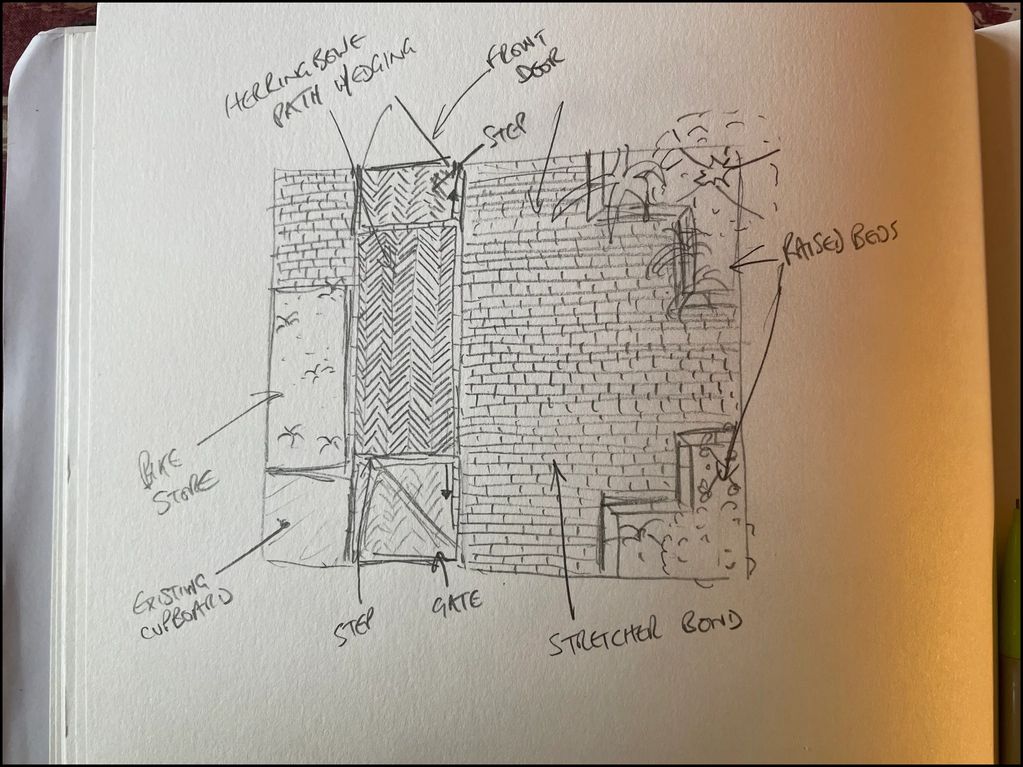 HERRINGBONE
PATH W/EDGING
FRONT
DOOR
STEP
RAISED BEDS
BIKE
STORE
EXISTING
CUPBOARD
STEP
GATE
STRETCHER BOND